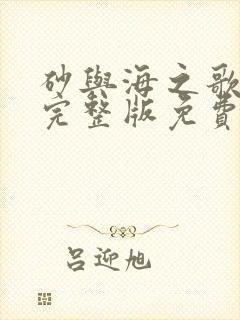 砂與海之歌
完整版免費
吕迎旭